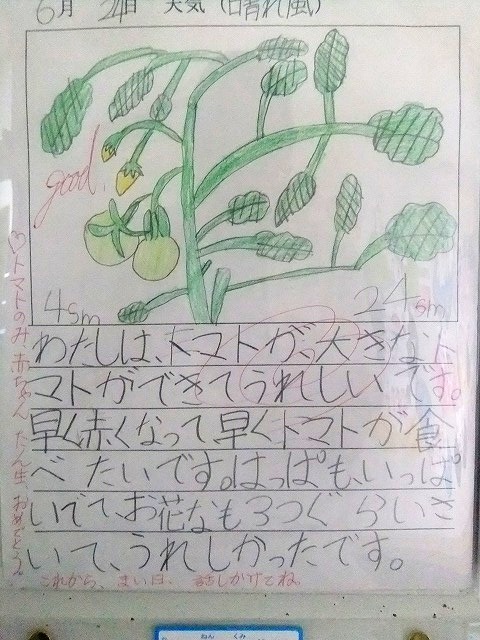 6月 24日 天気(晴れ風)
good.
4sm 24sm
わたしは、トマトが、大きなト
マトができてうれしいです。
早く赤くなって早くトマトが食
べたいです。はっぱも、いっぱ
いでて、お花なも3つぐらいさ
いて、うれしかったです。
♡トマトのみ、赤ちゃん たん生 おめでとう。
これから、まい日、話しかけてね。
ねん くみ